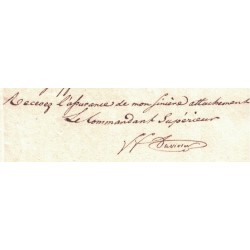 Recevez l'assurance de mon sincère attachement
Le Commandant Supérieur